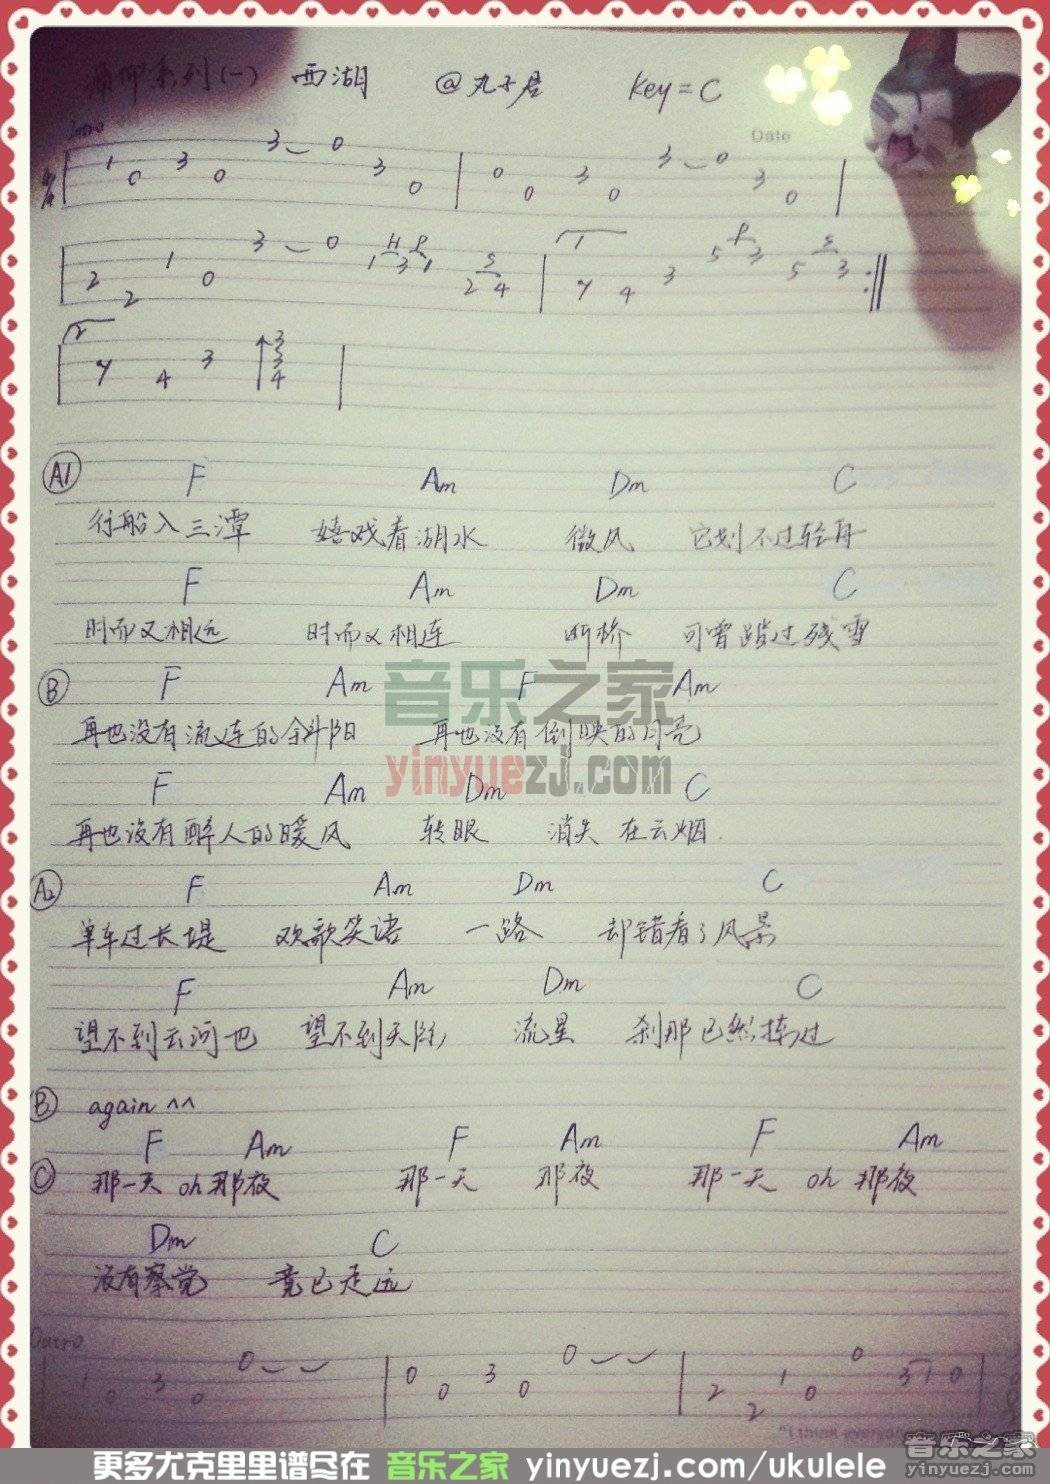 系列(一) 西湖 @丸子君 Key=C
Intro Date
4/4 1 0 3 0 3 0 3 0 0 0 3 0 3 0 3 0
2 2 1 0 3 0 H P 1 3 1 S 2 4 1 7 4 3 P 5 3 S 5 3
2 7 4 3 3 3 3 4
A1 F Am Dm C
行船入三潭 嬉戏着湖水 微风 它划不过轻舟
F Am Dm C
时而又相远 时而又相连 断桥 可曾踏过残雪
B F Am F Am
再也没有流连的斜阳 再也没有倒映的月亮
F Am Dm C
再也没有醉人的暖风 转眼 消失在云烟.
A2 F Am Dm C
单车过长堤 欢歌笑语 一路 却错看了风景
F Am Dm C
望不到云河也 望不到天际 流星 刹那已然掠过
B again ^^
F Am F Am F Am
C 那一天 oh 那夜 那一天 那夜 那一天 oh 那夜
Dm C
没有察觉 竟已走远
Outro
1 0 3 0 0 0 0 3 0 0 2 2 1 0 0 3 1 0
"I think every
音乐之家
yinyuezj.com
音乐之家
yinyuezj.com
更多尤克里里谱尽在 音乐之家 yinyuezj.com/ukulele